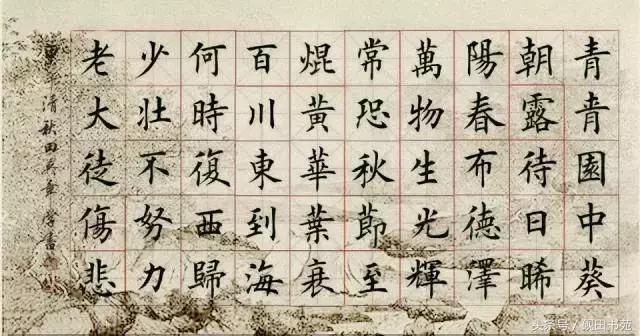 青青園中葵
朝露待日晞
陽春布德澤
萬物生光輝
常恐秋節至
焜黃華葉衰
百川東到海
何時復西歸
少壯不努力
老大徒傷悲
清秋田英章
头条号 / 砚田书苑